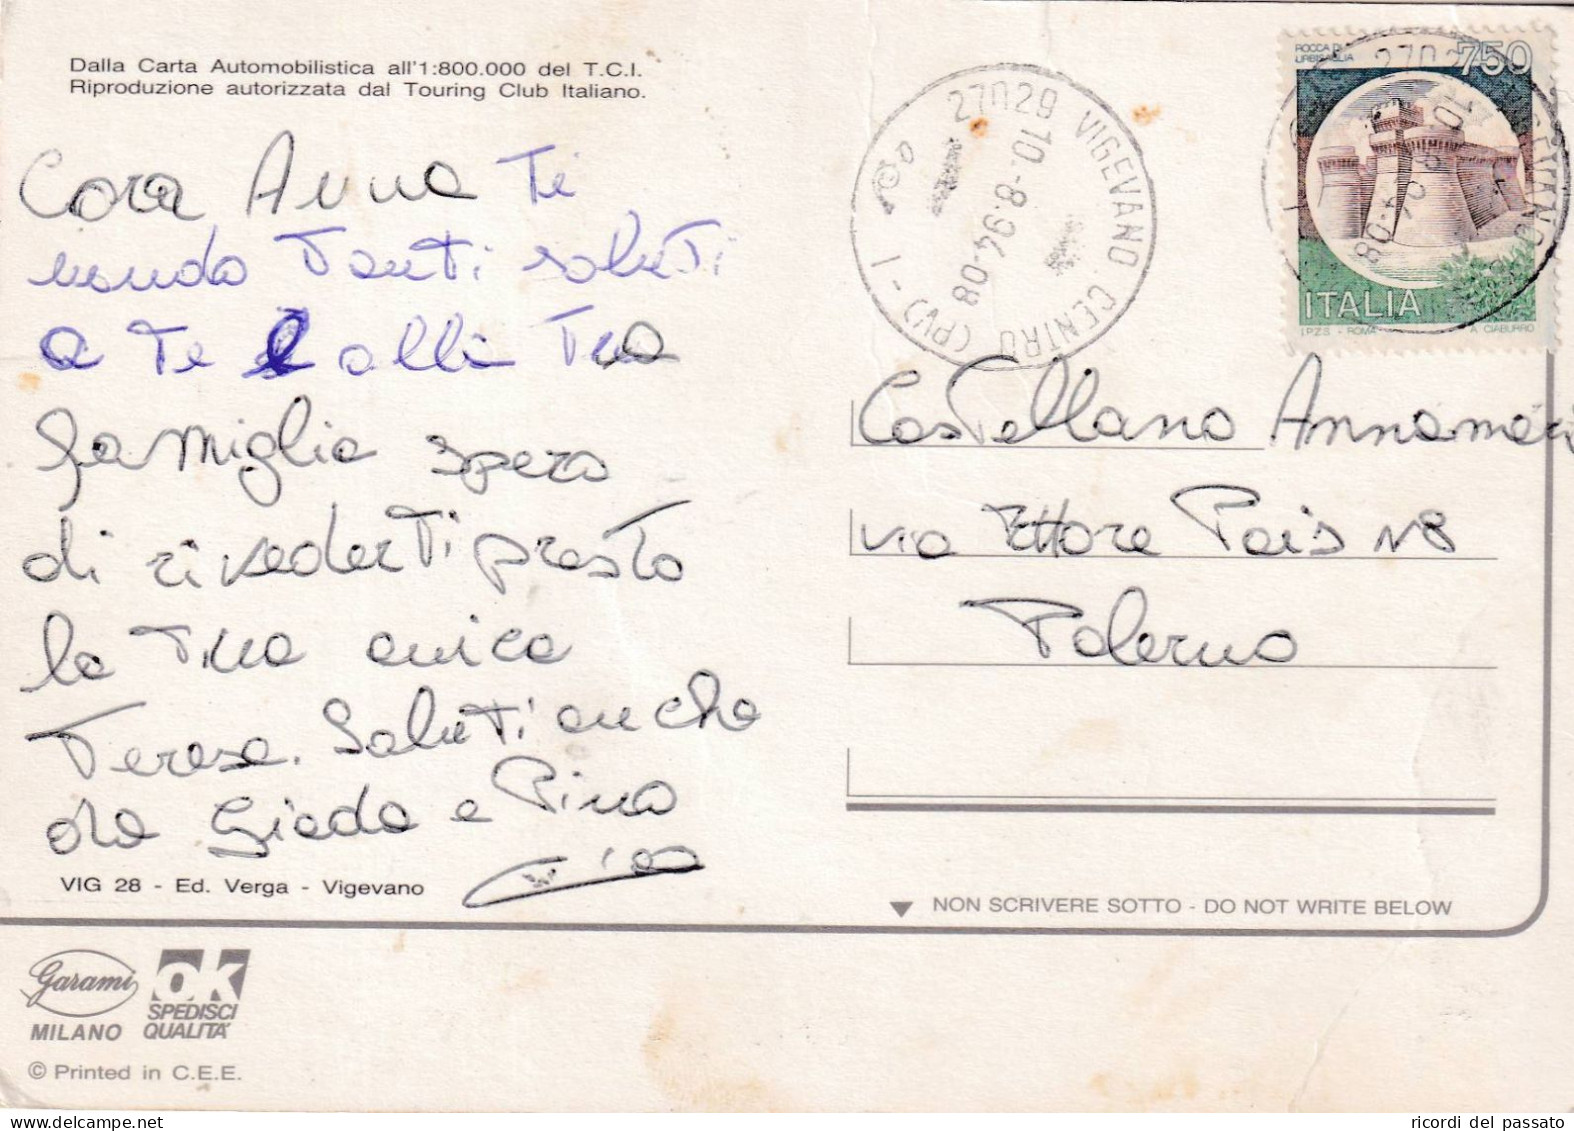 Dalla Carta Automobilistica all'1:800.000 del T.C.I.
Riproduzione autorizzata dal Touring Club Italiano.
Cara Anna Ti
mando Tanti saluti
a Te e alla Tua
famiglia spero
di rivederTi presto
la Tua amica
Teresa. SaluTi anche
da Giada e Pina
Ciao
VIG 28 - Ed. Verga - Vigevano
27029 VIGEVANO CENTRO (PV) - 1
10-8-94-08
ROCCA DI
URBISAGLIA
750
ITALIA
I.P.Z.S. - ROMA
A. CIABURRO
Castellano Annamari
via Ettore Pais N8
Palermo
NON SCRIVERE SOTTO - DO NOT WRITE BELOW
Garami
MILANO
OK
SPEDISCI
QUALITA'
© Printed in C.E.E.
ricordi del passato